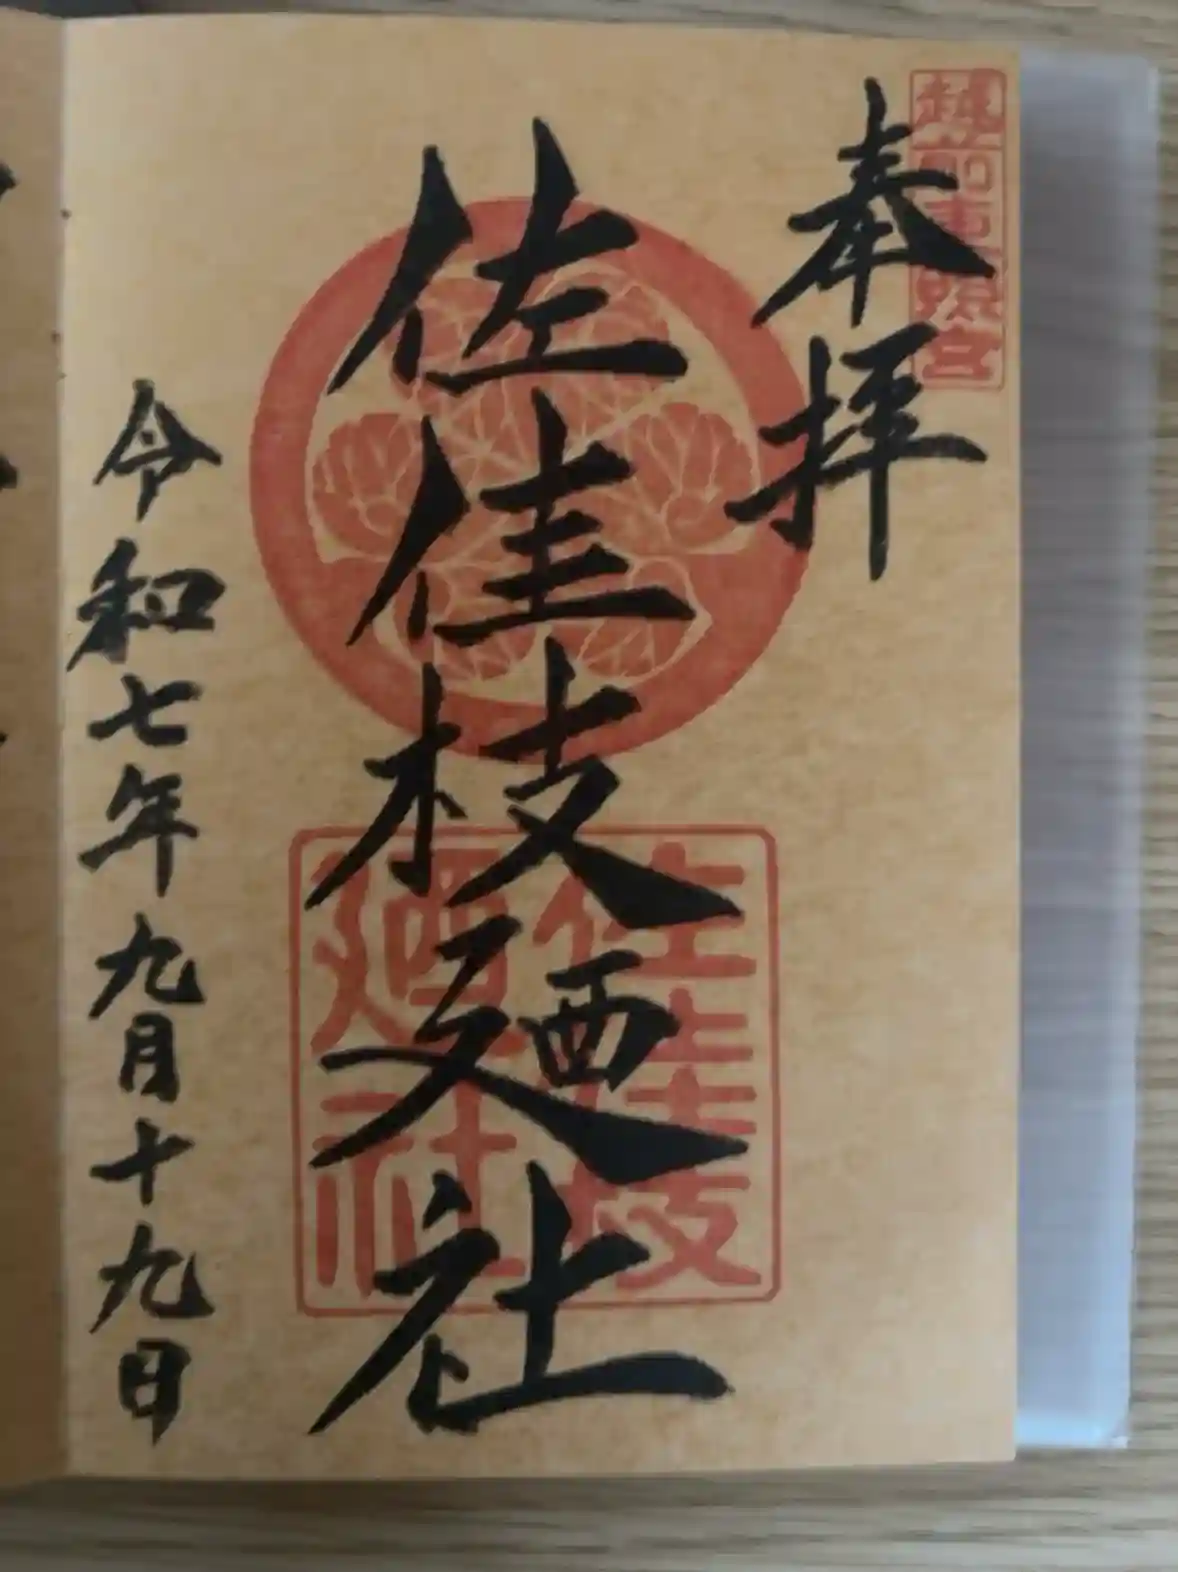 越前東照宮
奉拝
佐佳枝廼社
佐佳枝
廼社
令和七年九月十九日